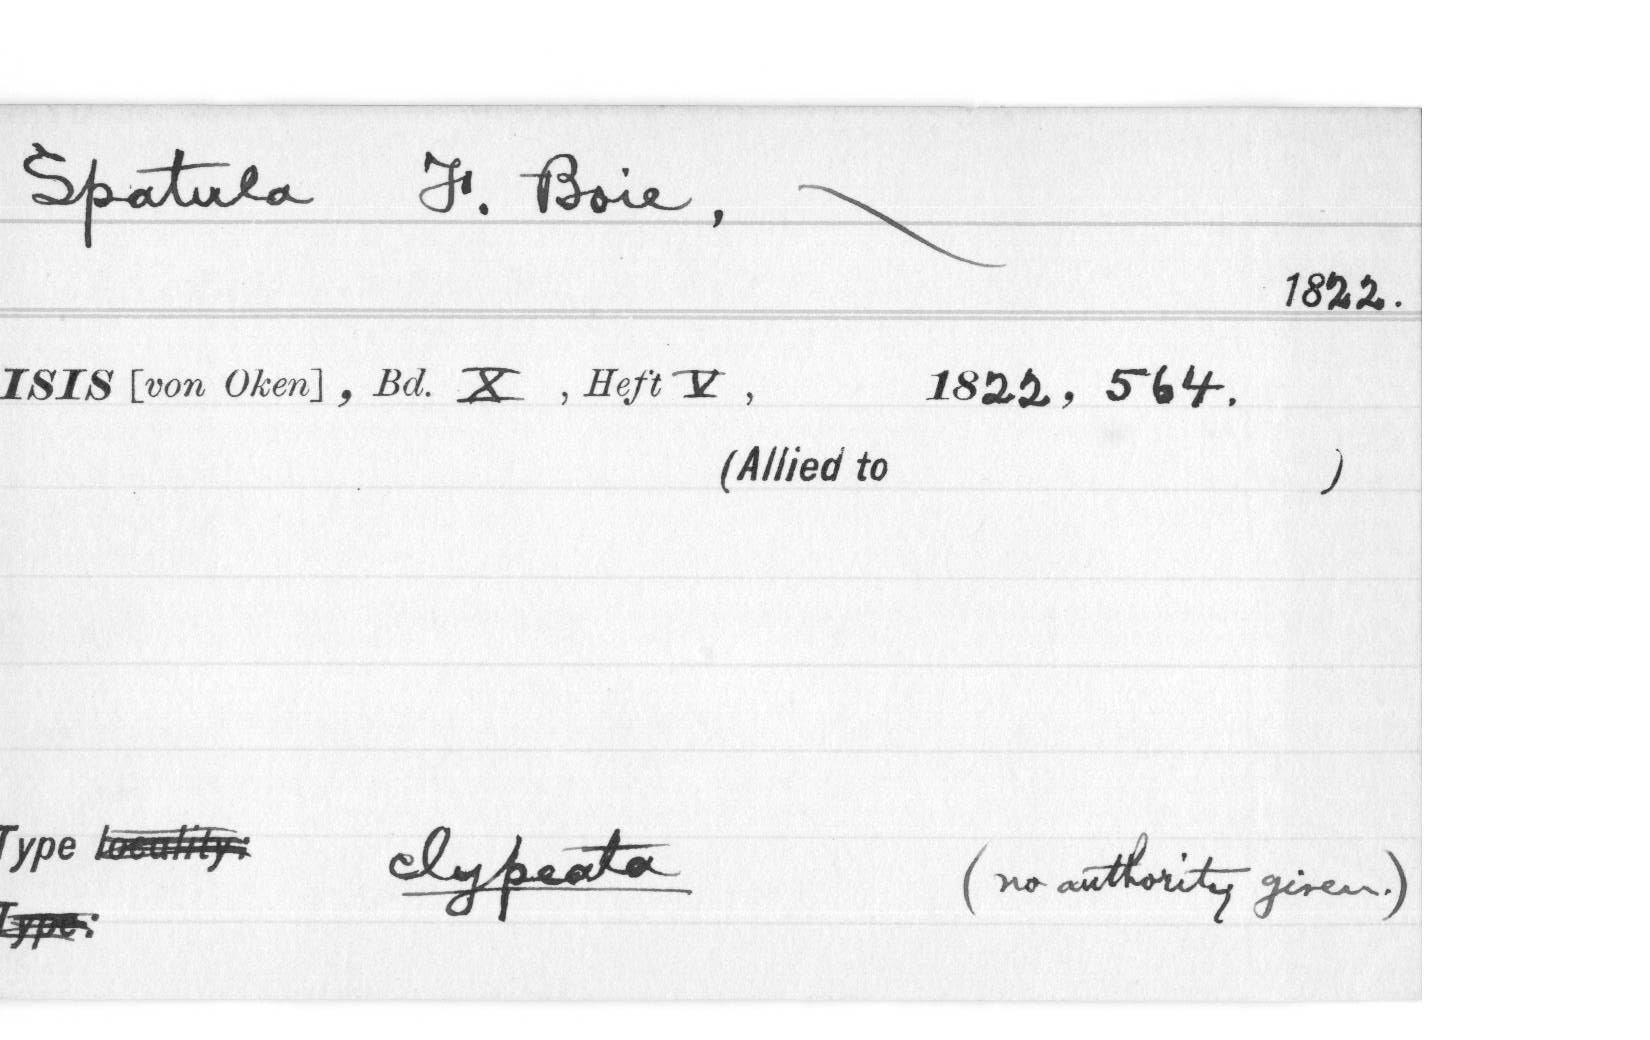 Spatula F. Boie,
1822.
ISIS [von Oken], Bd. X, Heft V, 1822, 564.
(Allied to )
Type locality: clypeata (no authority given.)
Type: